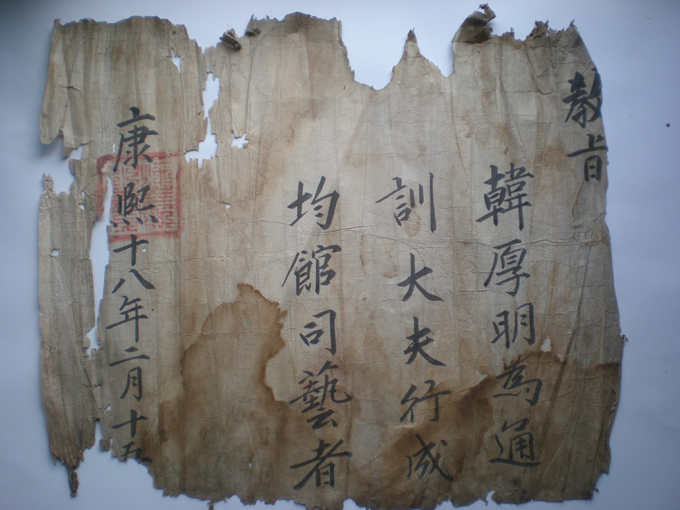 教旨
韓厚明為通
訓大夫行成
均館司藝者
康熙十八年二月十五